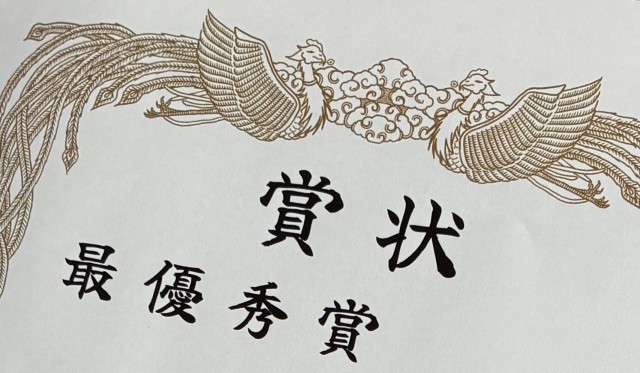 賞状
最優秀賞